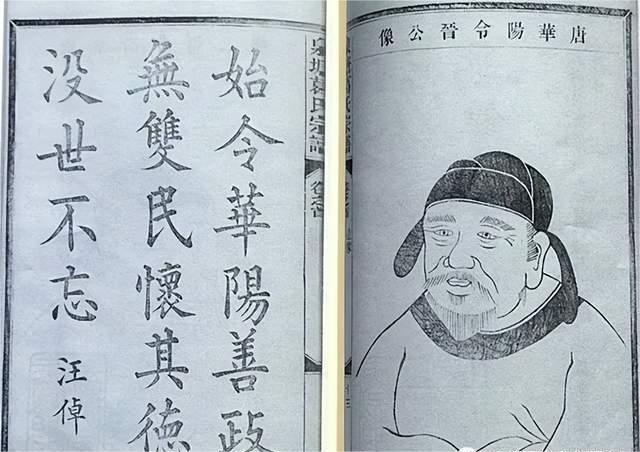 唐華陽令晉公像
始令華陽善政
無雙民懷其德
没世不忘
汪倬
葛氏宗譜